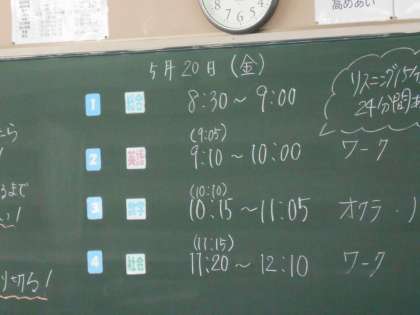 高めあい
5月20日(金)
リスニング
24分間
1 総合 8:30〜9:00
(9:05)
2 英語 9:10〜10:00 ワーク
(10:10)
3 10:15〜11:05 オクラ
(11:15)
4 社会 11:20〜12:10 ワーク
たら
るまで
い!
り切る!